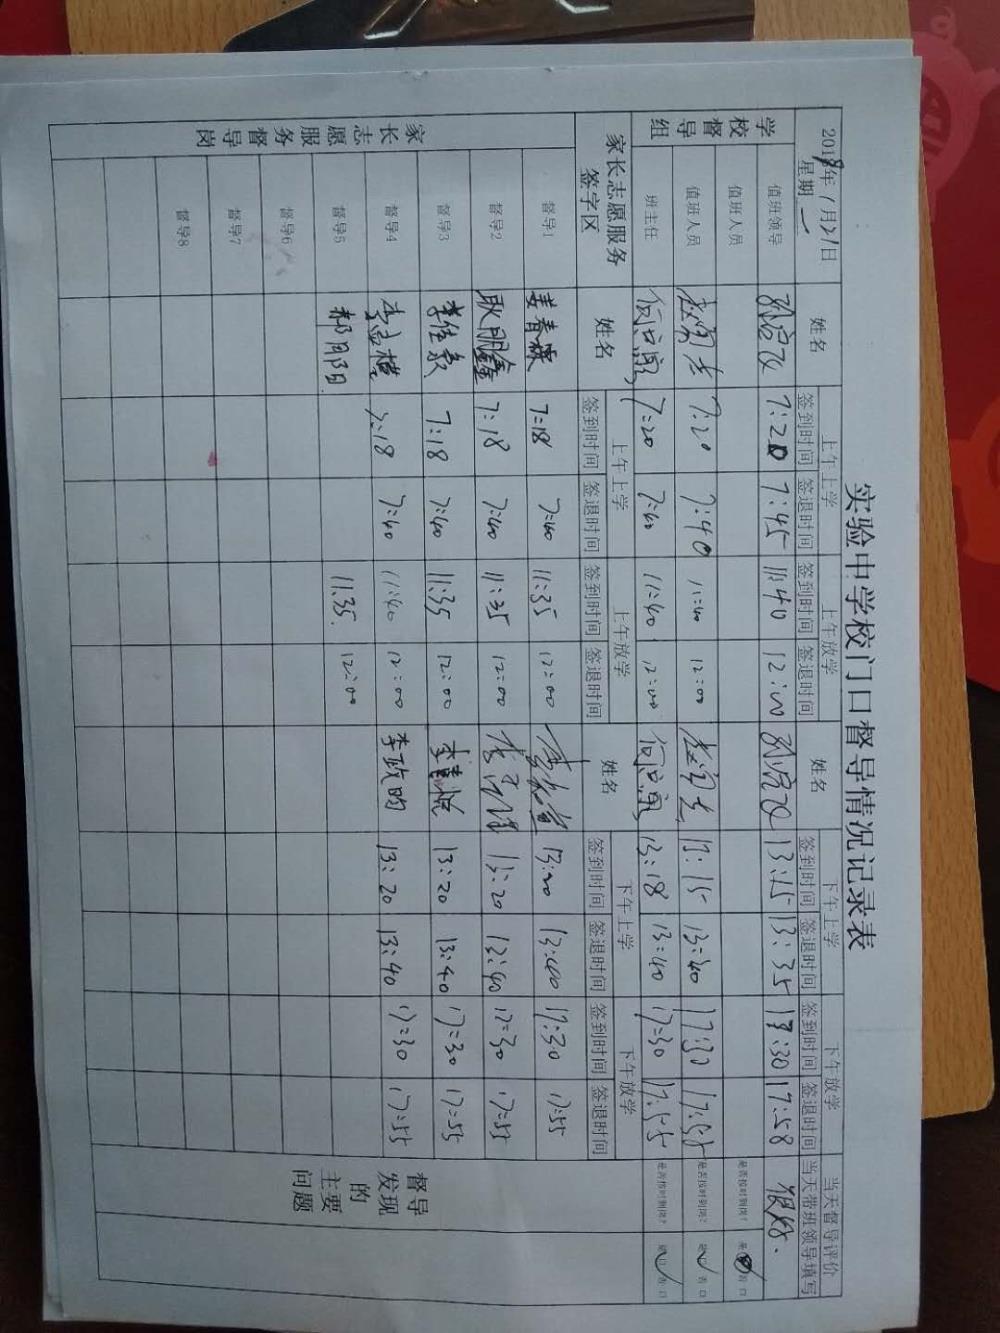 实验中学校门口督导情况记录表
2019年1月21日 星期一 姓名 上午上学 上午放学 姓名 下午上学 下午放学 当天督导评价
签到时间 签退时间 签到时间 签退时间 签到时间 签退时间 签到时间 签退时间 当天带班领导填写
学校督导组 值班领导 7:20 7:45 11:40 12:00 13:15 13:35 17:30 17:58 很好.
值班人员 是否按时到岗? 是 否口
值班人员 7:20 7:40 11:40 12:00 13:15 13:40 17:30 17:55 是否按时到岗? 是 否口
班主任 7:20 7:40 11:40 12:00 13:18 13:40 17:30 17:55 是否按时到岗? 是 否口
家长志愿服务签字区 姓名 上午上学 上午放学 姓名 下午上学 下午放学
签到时间 签退时间 签到时间 签退时间 签到时间 签退时间 签到时间 签退时间
家长志愿服务督导岗 督导1 姜春霖 7:18 7:40 11:35 12:00 13:20 13:40 17:30 17:55 督导发现的主要问题
督导2 耿明鑫 7:18 7:40 11:35 12:00 13:20 13:40 17:30 17:55
督导3 李佳泉 7:18 7:40 11:35 12:00 李喜悦 13:20 13:40 17:30 17:55
督导4 7:18 7:40 11:40 12:00 李政昀 13:20 13:40 17:30 17:55
督导5 郝明阳 11:35 12:00
督导6
督导7
督导8